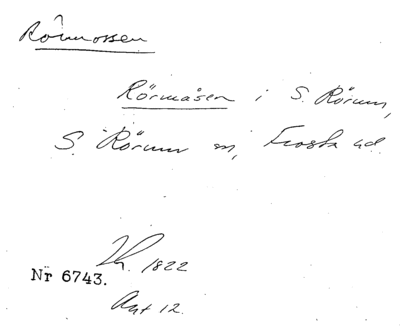 Rörmossen
Rörmåsen i S. Rörum,
S. Rörum sn, Frosta hd.
Lk. 1822
Nr 6743.
Akt 12.